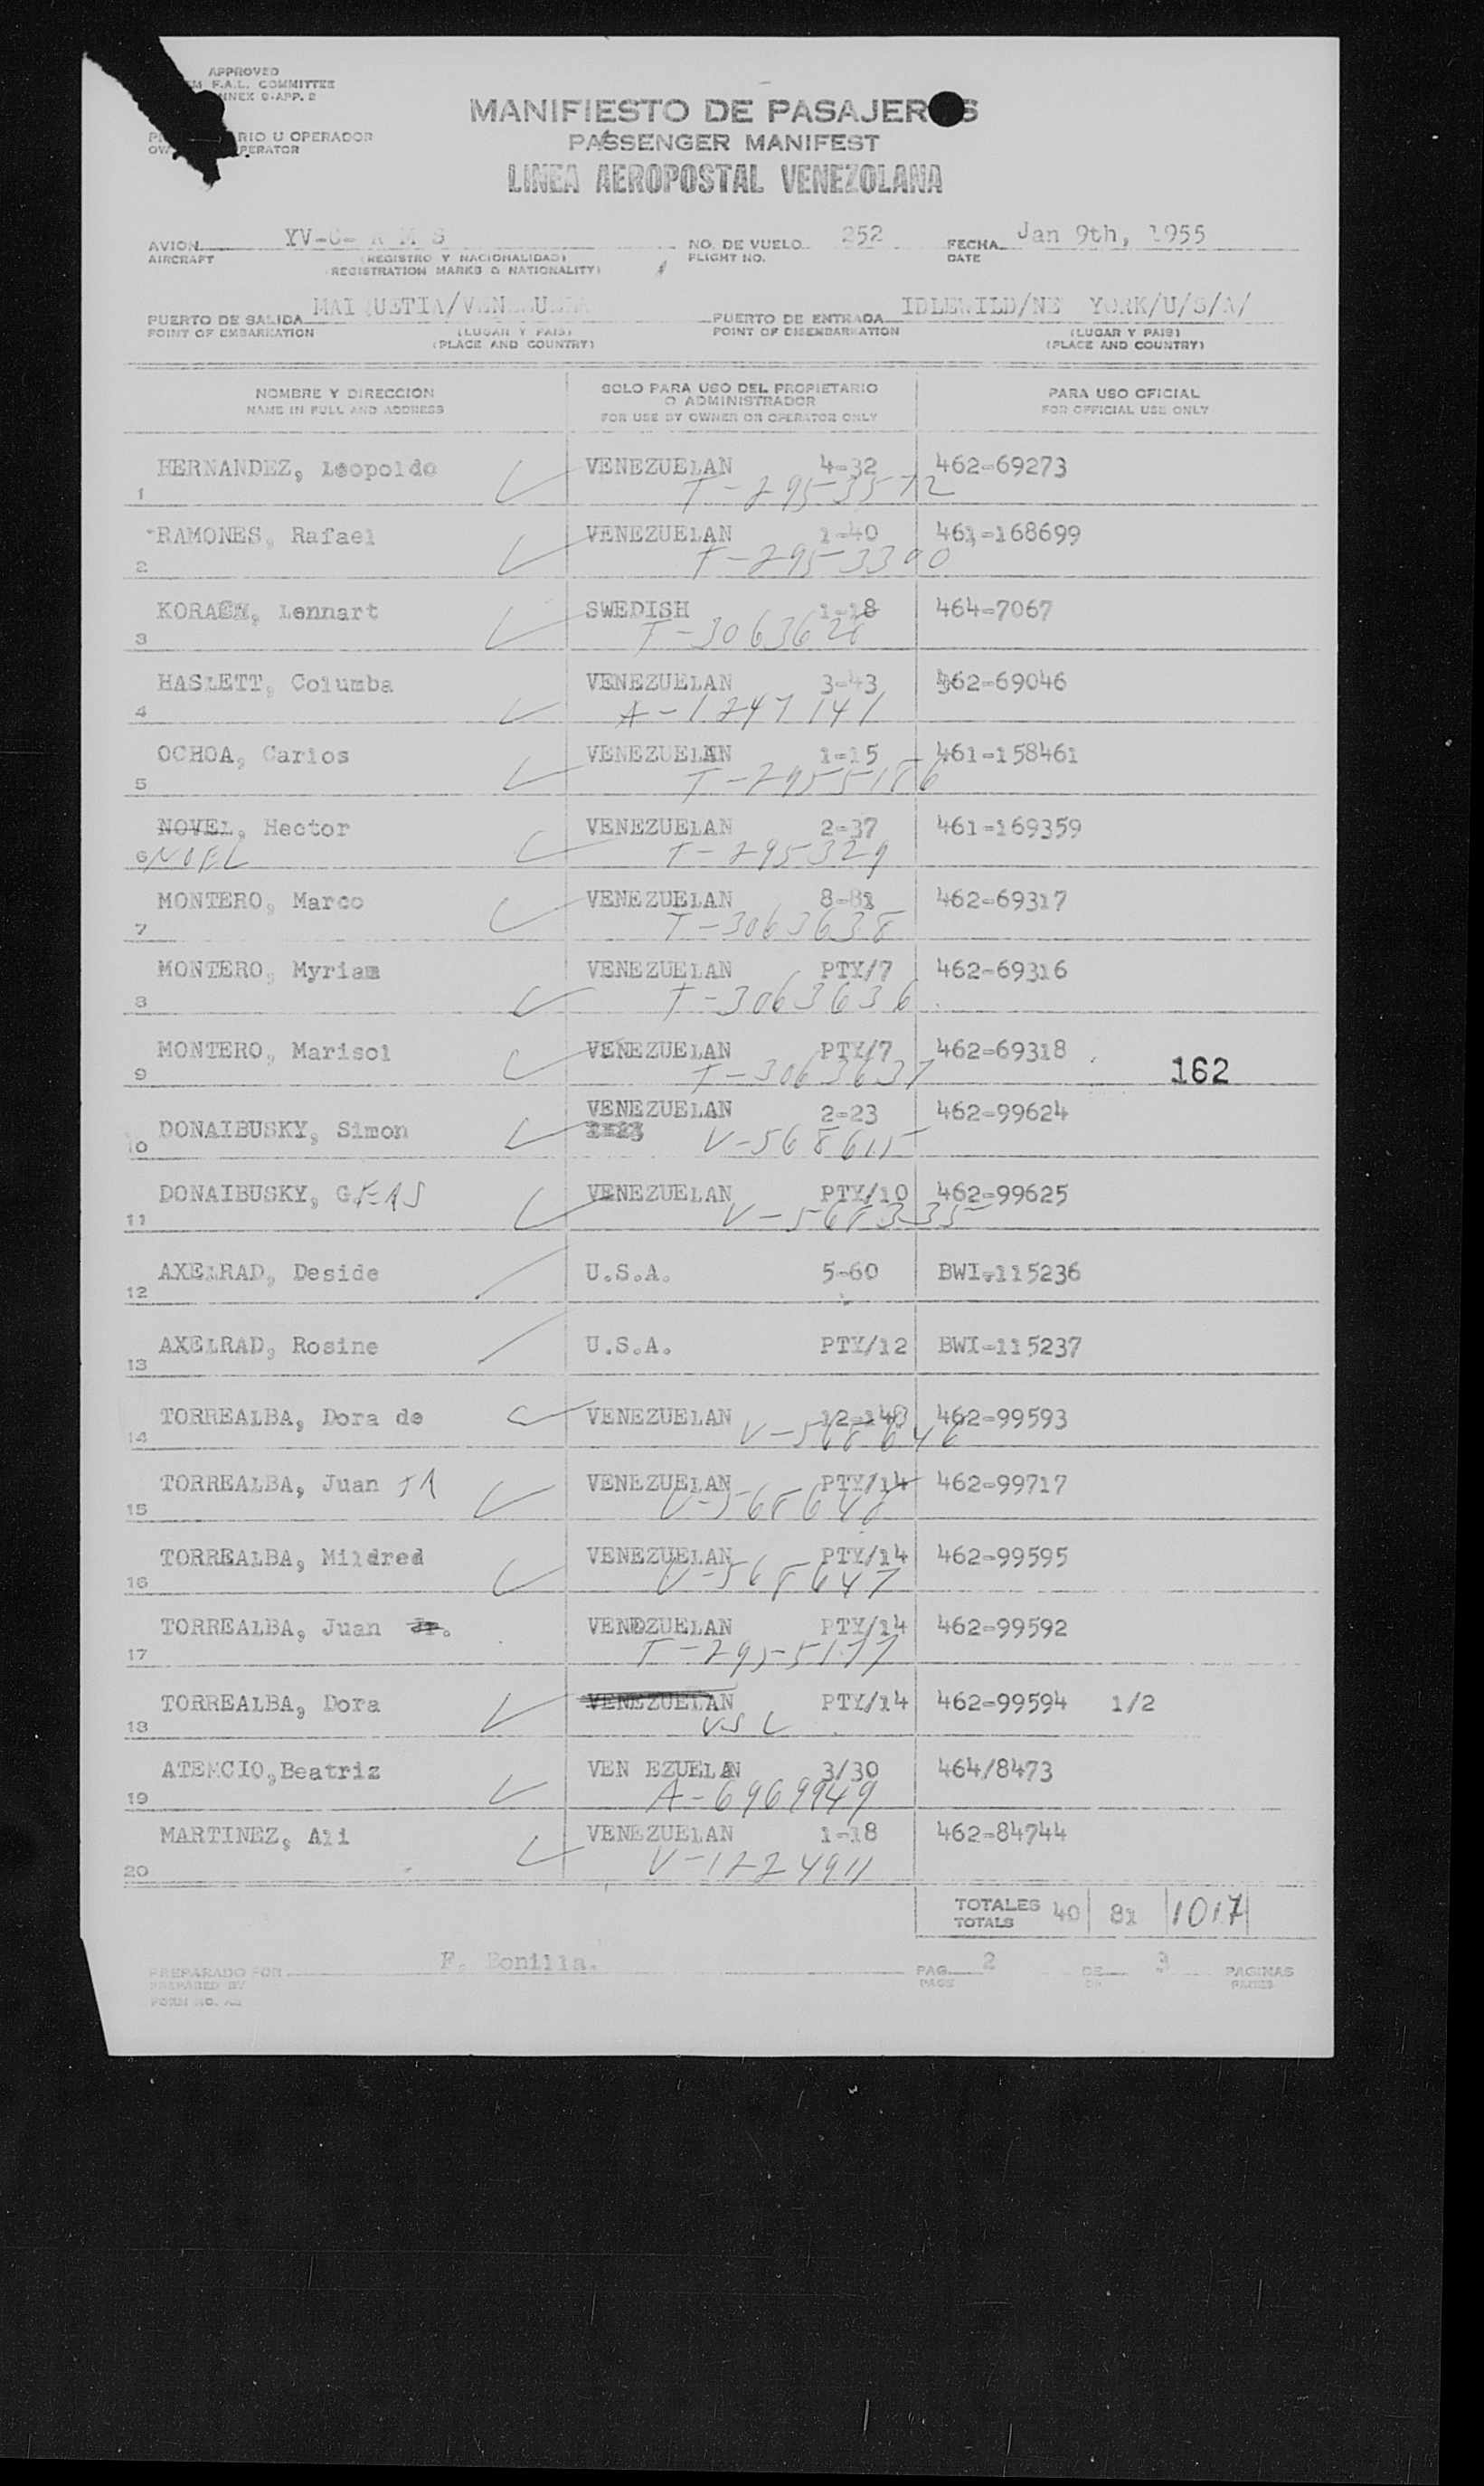 APPROVED
F.A.L. COMMITTEE
ANNEX 9-APP. 2
MANIFIESTO DE PASAJEROS
PASSENGER MANIFEST
RIO U OPERADOR
OPERATOR
LINEA AEROPOSTAL VENEZOLANA
AVION YV-C- A M S NO. DE VUELO 252 FECHA Jan 9th, 1955
AIRCRAFT (REGISTRO Y NACIONALIDAD) FLIGHT NO. DATE
(REGISTRATION MARKS & NATIONALITY)
PUERTO DE SALIDA MAIQUETIA/VENEZUELA PUERTO DE ENTRADA IDLEWILD/NE YORK/U/S/A/
POINT OF EMBARKATION (LUGAR Y PAIS) POINT OF DISEMBARKATION (LUGAR Y PAIS)
(PLACE AND COUNTRY) (PLACE AND COUNTRY)
NOMBRE Y DIRECCION SOLO PARA USO DEL PROPIETARIO O ADMINISTRADOR PARA USO OFICIAL
NAME IN FULL AND ADDRESS FOR USE BY OWNER OR OPERATOR ONLY FOR OFFICIAL USE ONLY
HERNANDEZ, Leopoldo VENEZUELAN 4-32 462-69273
1 T-2953572
RAMONES, Rafael VENEZUELAN 1-40 461-168699
2 T-2953390
KORAEN, Lennart SWEDISH 1-18 464-7067
3 T-3063628
HASLETT, Columba VENEZUELAN 3-43 462-69046
4 A-1247141
OCHOA, Carlos VENEZUELAN 1-15 461-158461
5 T-2955186
NOVEL, Hector VENEZUELAN 2-37 461-169359
6 NOEL T-295329
MONTERO, Marco VENEZUELAN 8-81 462-69317
7 T-3063638
MONTERO, Myriam VENEZUELAN PTY/7 462-69316
8 T-3063636
MONTERO, Marisol VENEZUELAN PTY/7 462-69318
9 T-3063637 162
VENEZUELAN 2-23 462-99624
10 DONAIBUSKY, Simon V-568615
DONAIBUSKY, G VENEZUELAN PTY/10 462-99625
11 V-568335
AXELRAD, Deside U.S.A. 5-60 BWI-115236
12
AXELRAD, Rosine U.S.A. PTY/12 BWI-115237
13
TORREALBA, Dora de VENEZUELAN 462-99593
14 V-568646
TORREALBA, Juan JR VENEZUELAN PTY/14 462-99717
15 V-568648
TORREALBA, Mildred VENEZUELAN PTY/14 462-99595
16 V-568647
TORREALBA, Juan Jr. VENEZUELAN PTY/14 462-99592
17 T-2955177
TORREALBA, Dora VENEZUELAN PTY/14 462-99594 1/2
18
ATENCIO,Beatriz VEN EZUELAN 3/30 464/8473
19 A-6969949
MARTINEZ, Ali VENEZUELAN 1-18 462-84744
20 V-1224911
TOTALES 40 81 1017
TOTALS
PREPARADO POR F. Bonilla. PAG. 2 DE 3 PAGINAS
PREPARED BY PAGE OF PAGES
FORM NO.